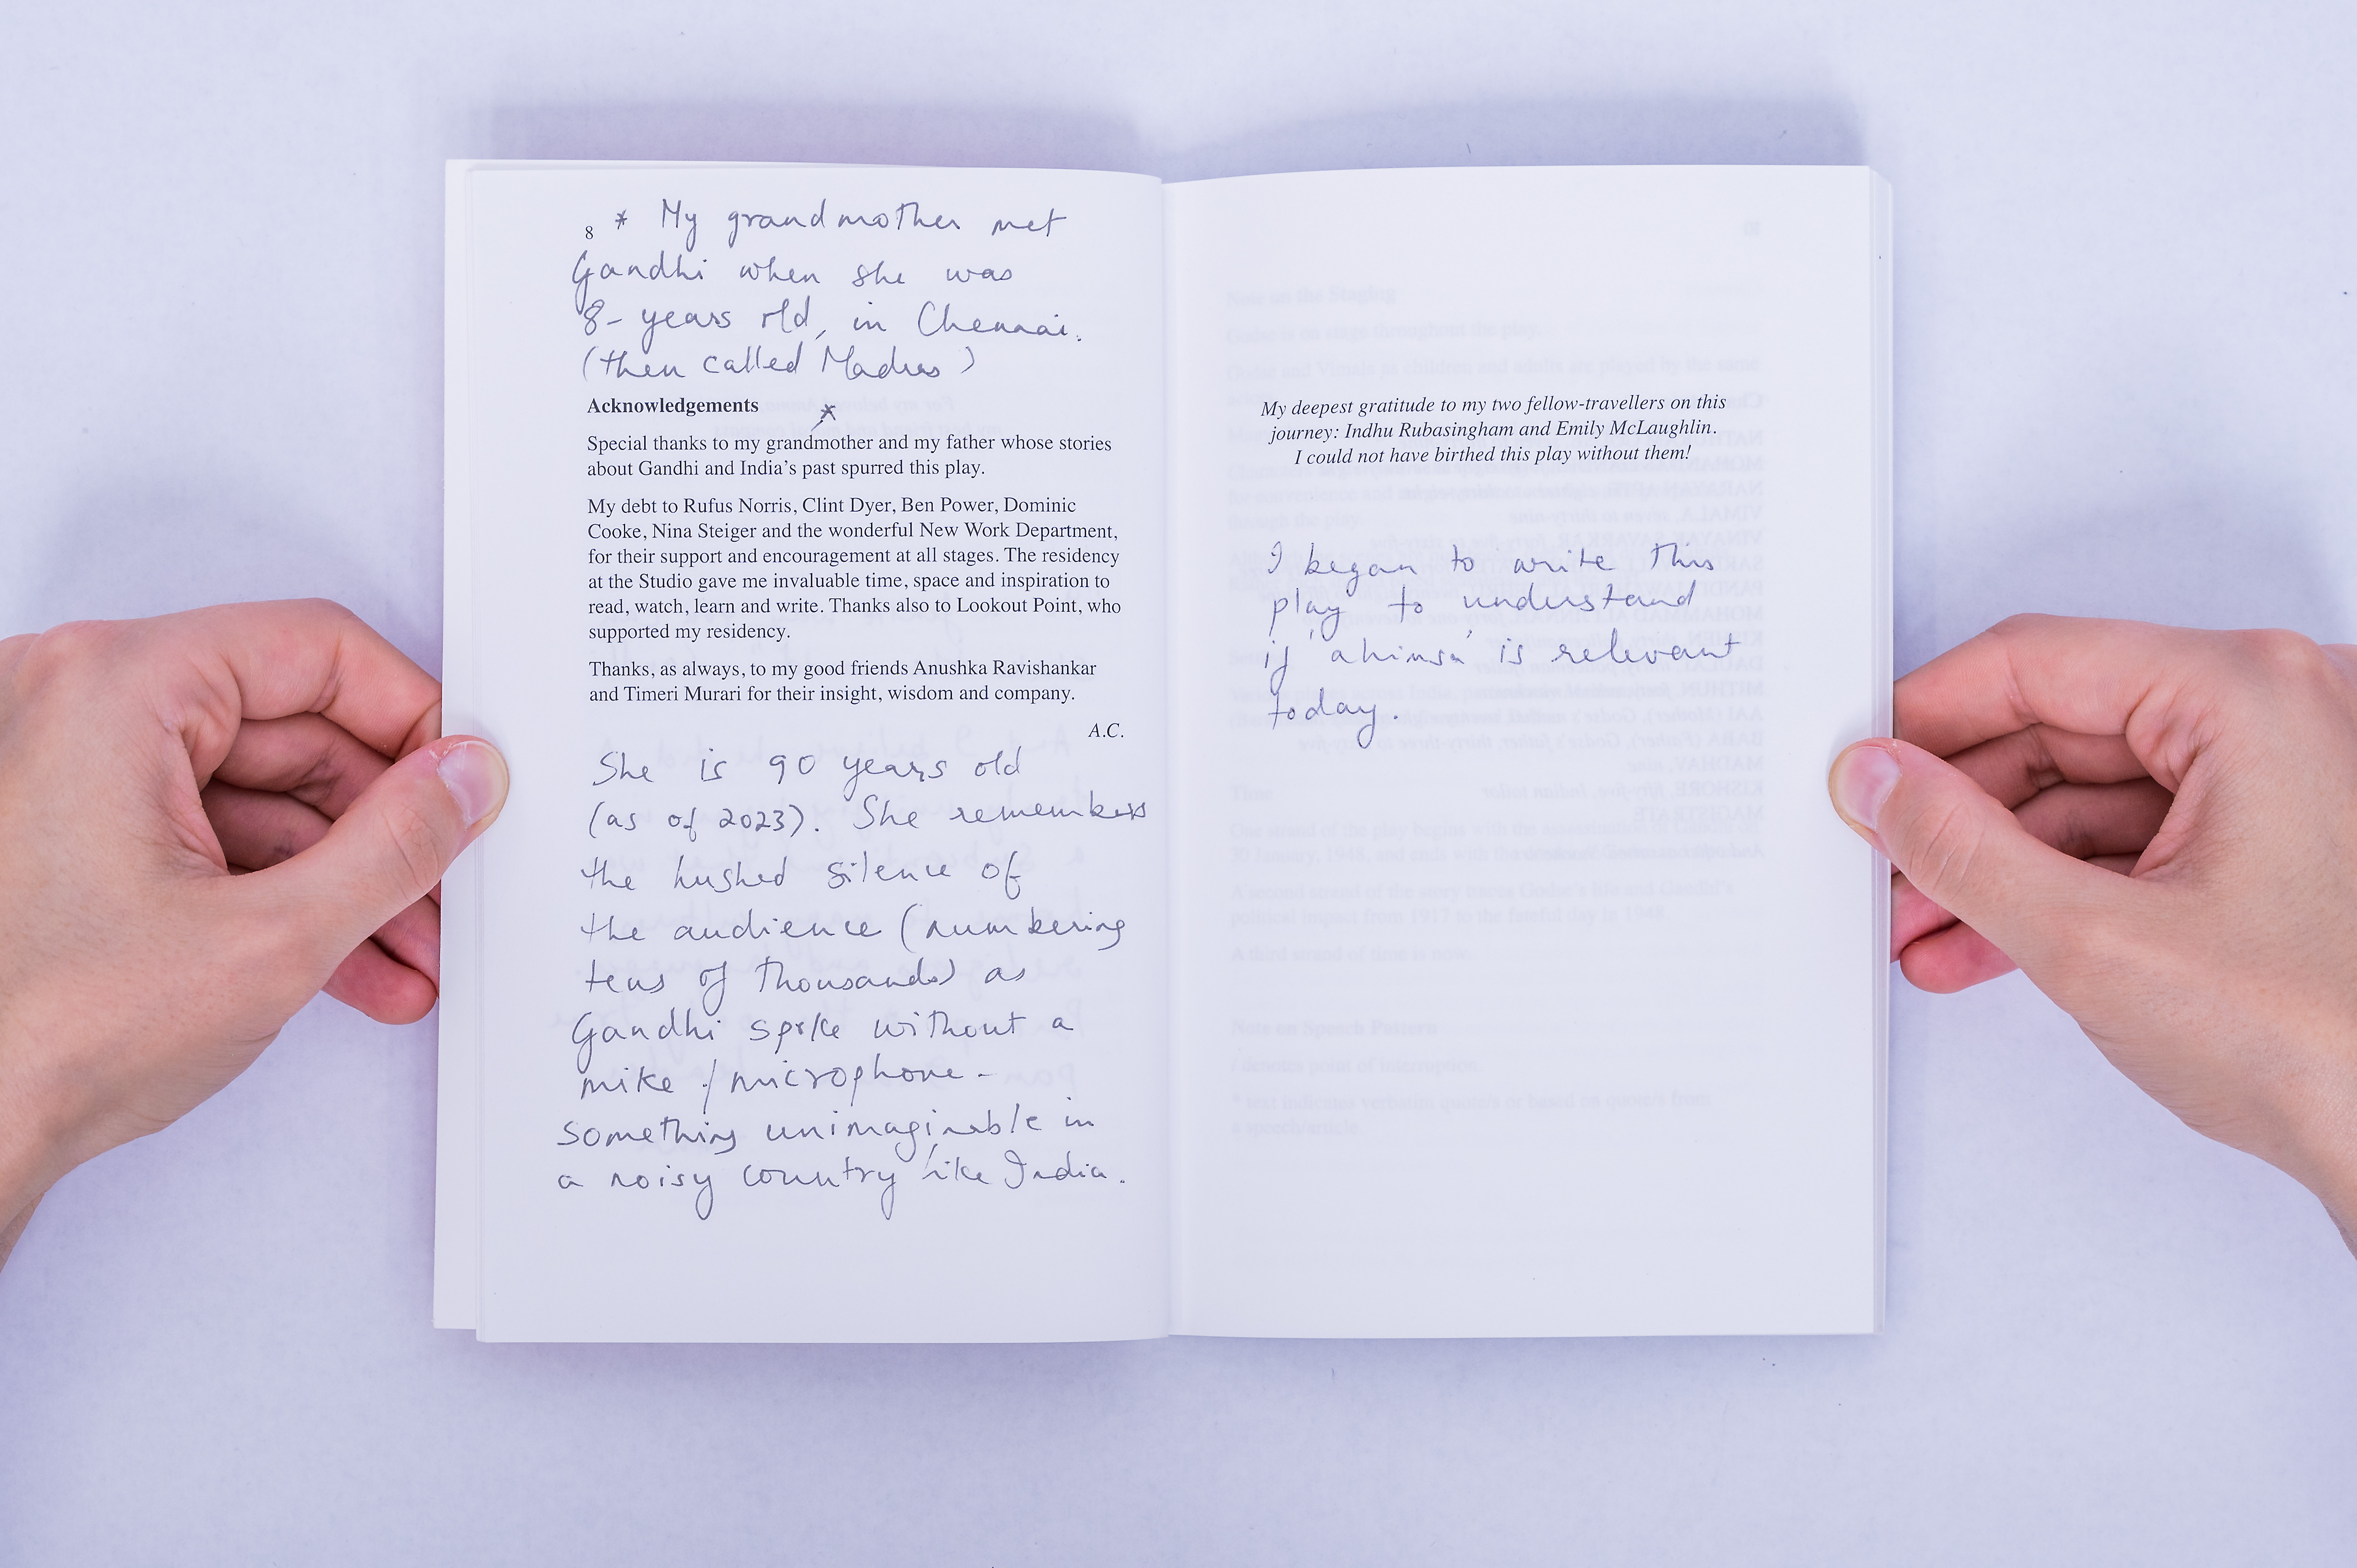 8 * My grandmother met
Gandhi when she was
8-years old, in Chennai.
(then called Madras)
Acknowledgements *
Special thanks to my grandmother and my father whose stories
about Gandhi and India's past spurred this play.
My debt to Rufus Norris, Clint Dyer, Ben Power, Dominic
Cooke, Nina Steiger and the wonderful New Work Department,
for their support and encouragement at all stages. The residency
at the Studio gave me invaluable time, space and inspiration to
read, watch, learn and write. Thanks also to Lookout Point, who
supported my residency.
Thanks, as always, to my good friends Anushka Ravishankar
and Timeri Murari for their insight, wisdom and company.
A.C.
She is 90 years old
(as of 2023). She remembers
the hushed silence of
the audience (numbering
tens of thousands) as
Gandhi spoke without a
mike / microphone -
something unimaginable in
a noisy country like India.
My deepest gratitude to my two fellow-travellers on this
journey: Indhu Rubasingham and Emily McLaughlin.
I could not have birthed this play without them!
I began to write this
play to understand
if 'ahimsa' is relevant
today.